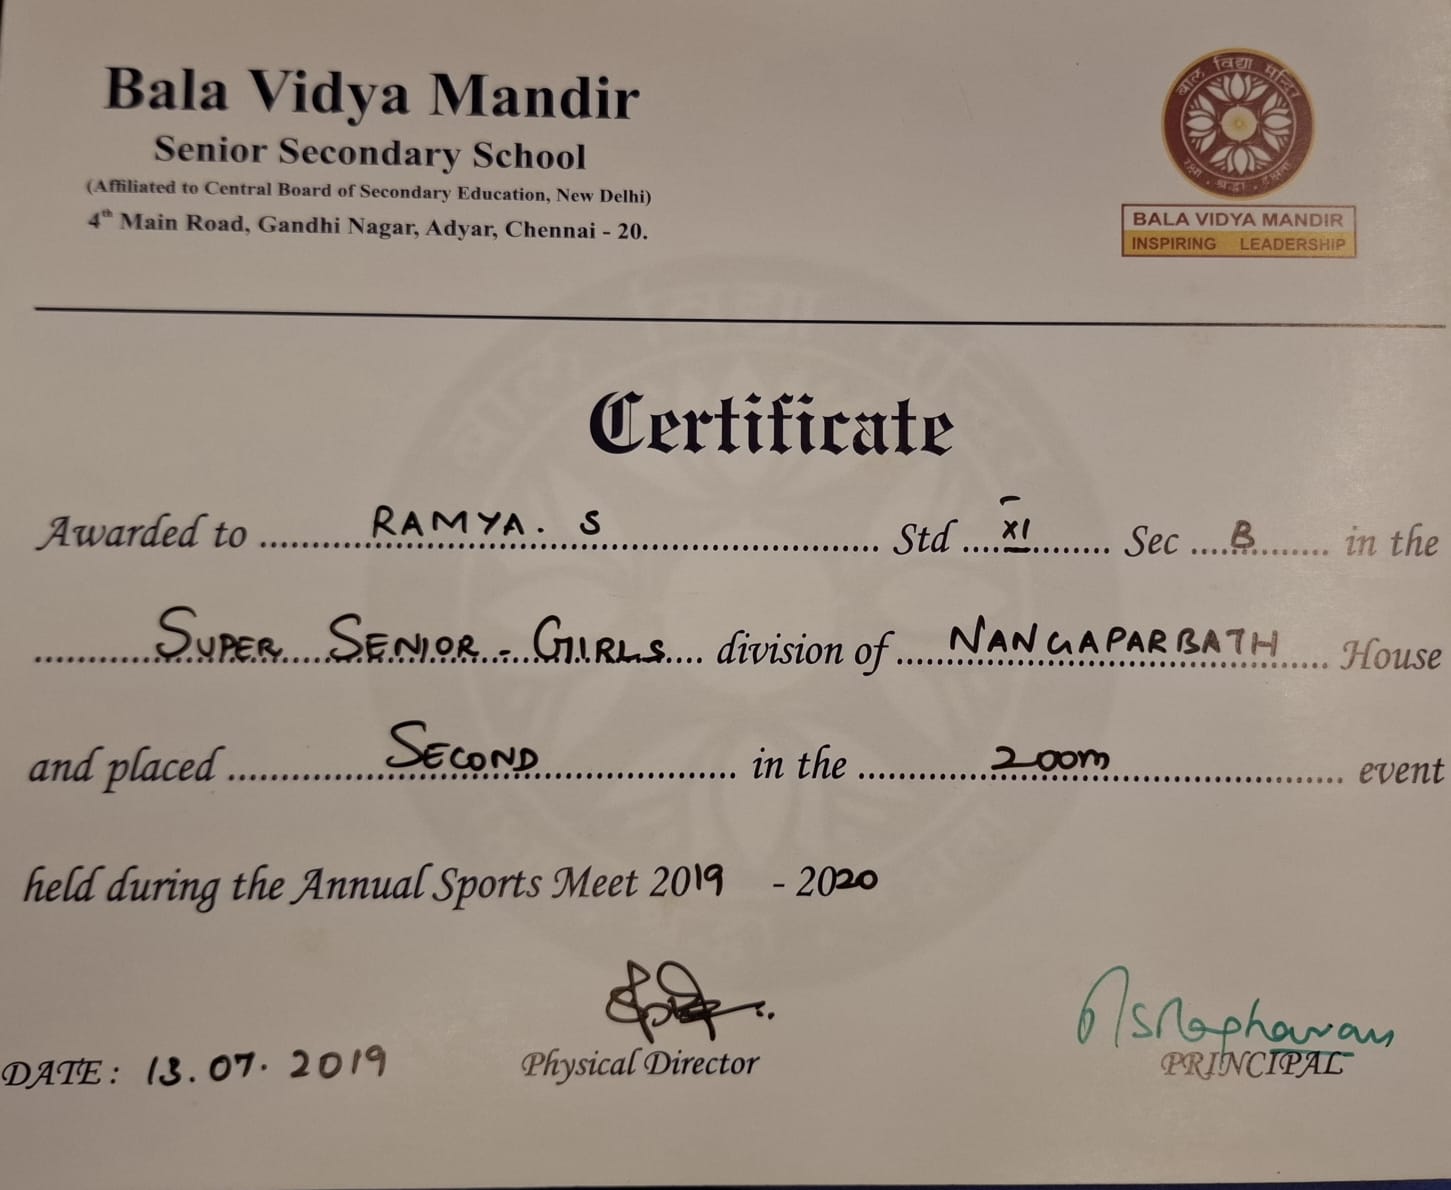 Bala Vidya Mandir
Senior Secondary School
(Affiliated to Central Board of Secondary Education, New Delhi)
4th Main Road, Gandhi Nagar, Adyar, Chennai - 20.
बाल विद्या मन्दिर
श्रद्धा
BALA VIDYA MANDIR
INSPIRING LEADERSHIP
Certificate
Awarded to RAMYA. S Std XI Sec B in the
SUPER SENIOR - GIRLS division of NANGAPARBATH House
and placed SECOND in the 200m event
held during the Annual Sports Meet 2019 - 2020
DATE: 13.07.2019
Physical Director
PRINCIPAL